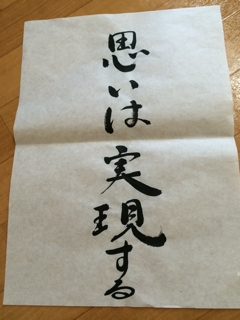 思いは実現する